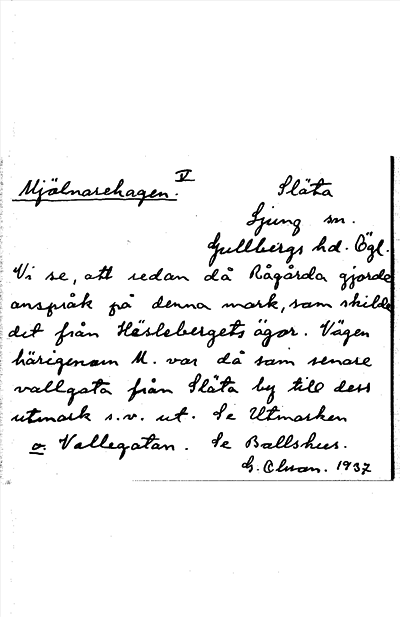 Mjölnarehagen. V
Släta
Ljung sn.
Gullbergs hd. Ögl.
Vi se, att redan då Rågårda gjorde
anspråk på denna mark, som skilde
det från Häslebergets ägor. Vägen
härigenom M. var då som senare
vallgata från Släta by till dess
utmark s.v. ut. Se Utmarken
o. Vallegatan. Se Ballshus.
G. Olsson. 1937